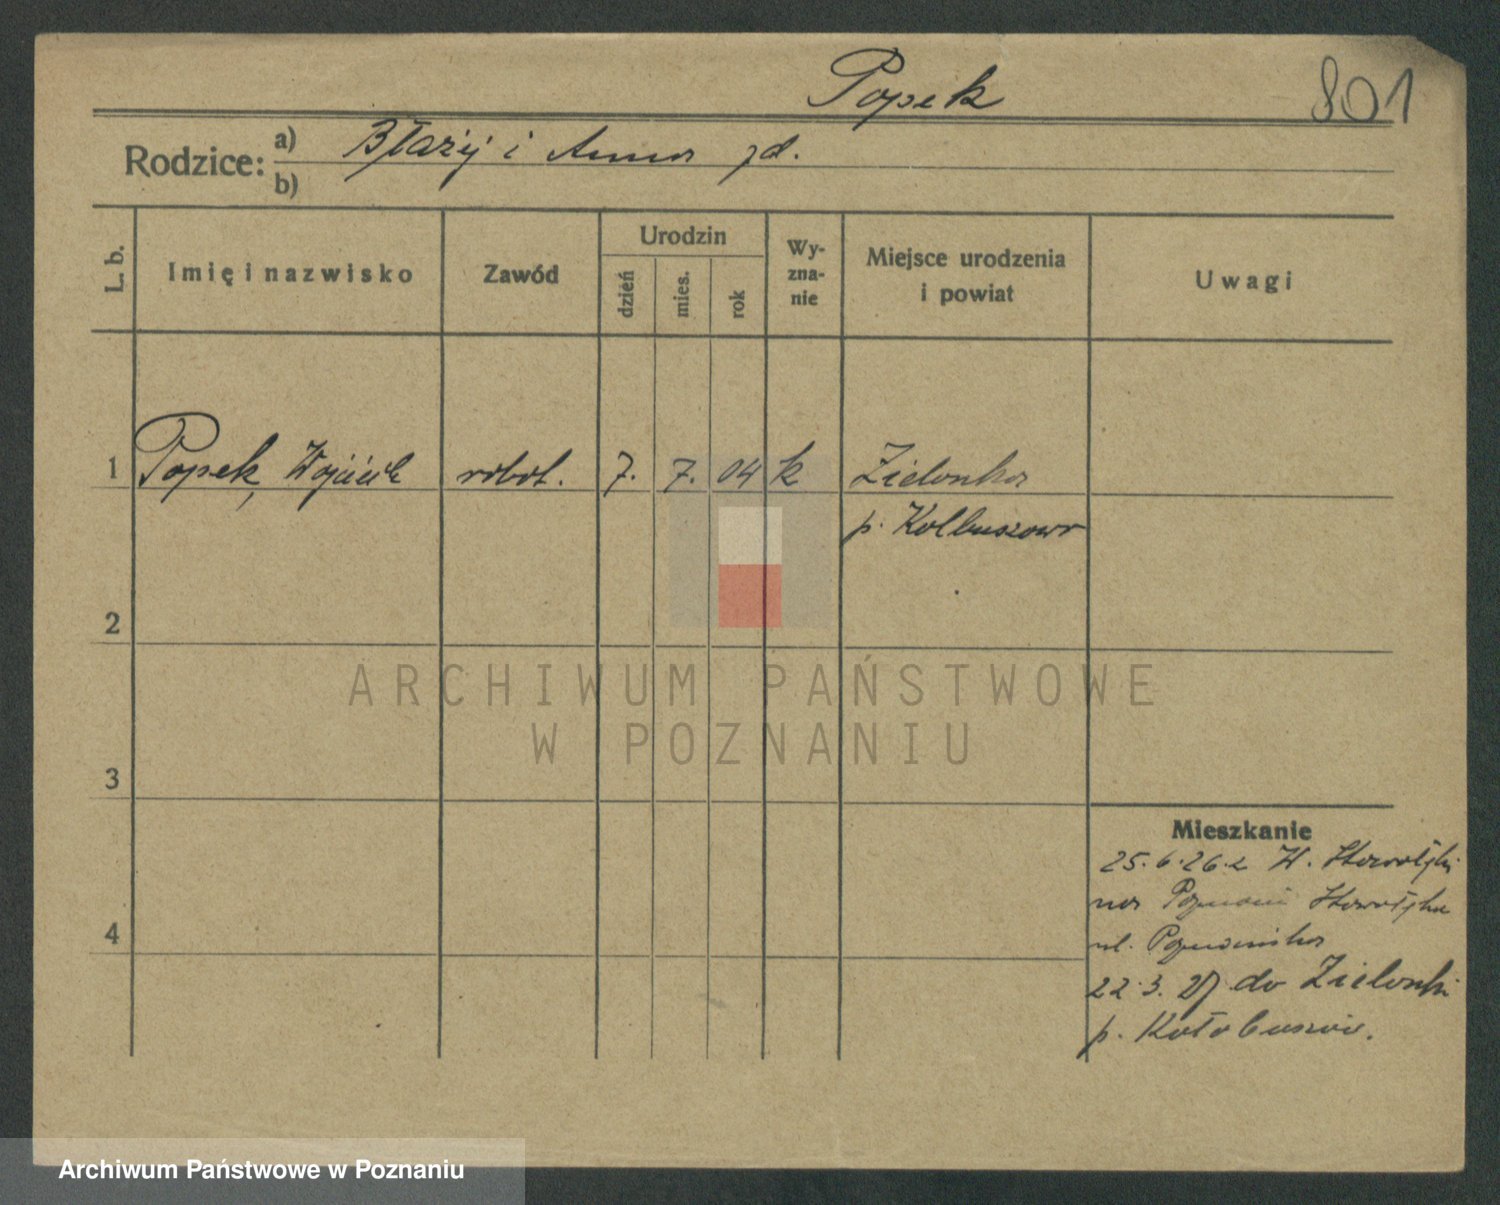 Popek
801
Rodzice:
a) Błażej i Anna zd.
b)
L. b.
Imię i nazwisko
Zawód
Urodzin
dzień
mies.
rok
Wy-
zna-
nie
Miejsce urodzenia
i powiat
Uwagi
1 Popek, Wojciech robot. 7. 7. 04 k Zielonka
p. Kolbuszowa
2
ARCHIWUM PAŃSTWOWE
W POZNANIU
3
Mieszkanie
25.6.26. z W.
na
4
ul. Poznańska
22.3. 27 do Zielonki
p.
Archiwum Państwowe w Poznaniu